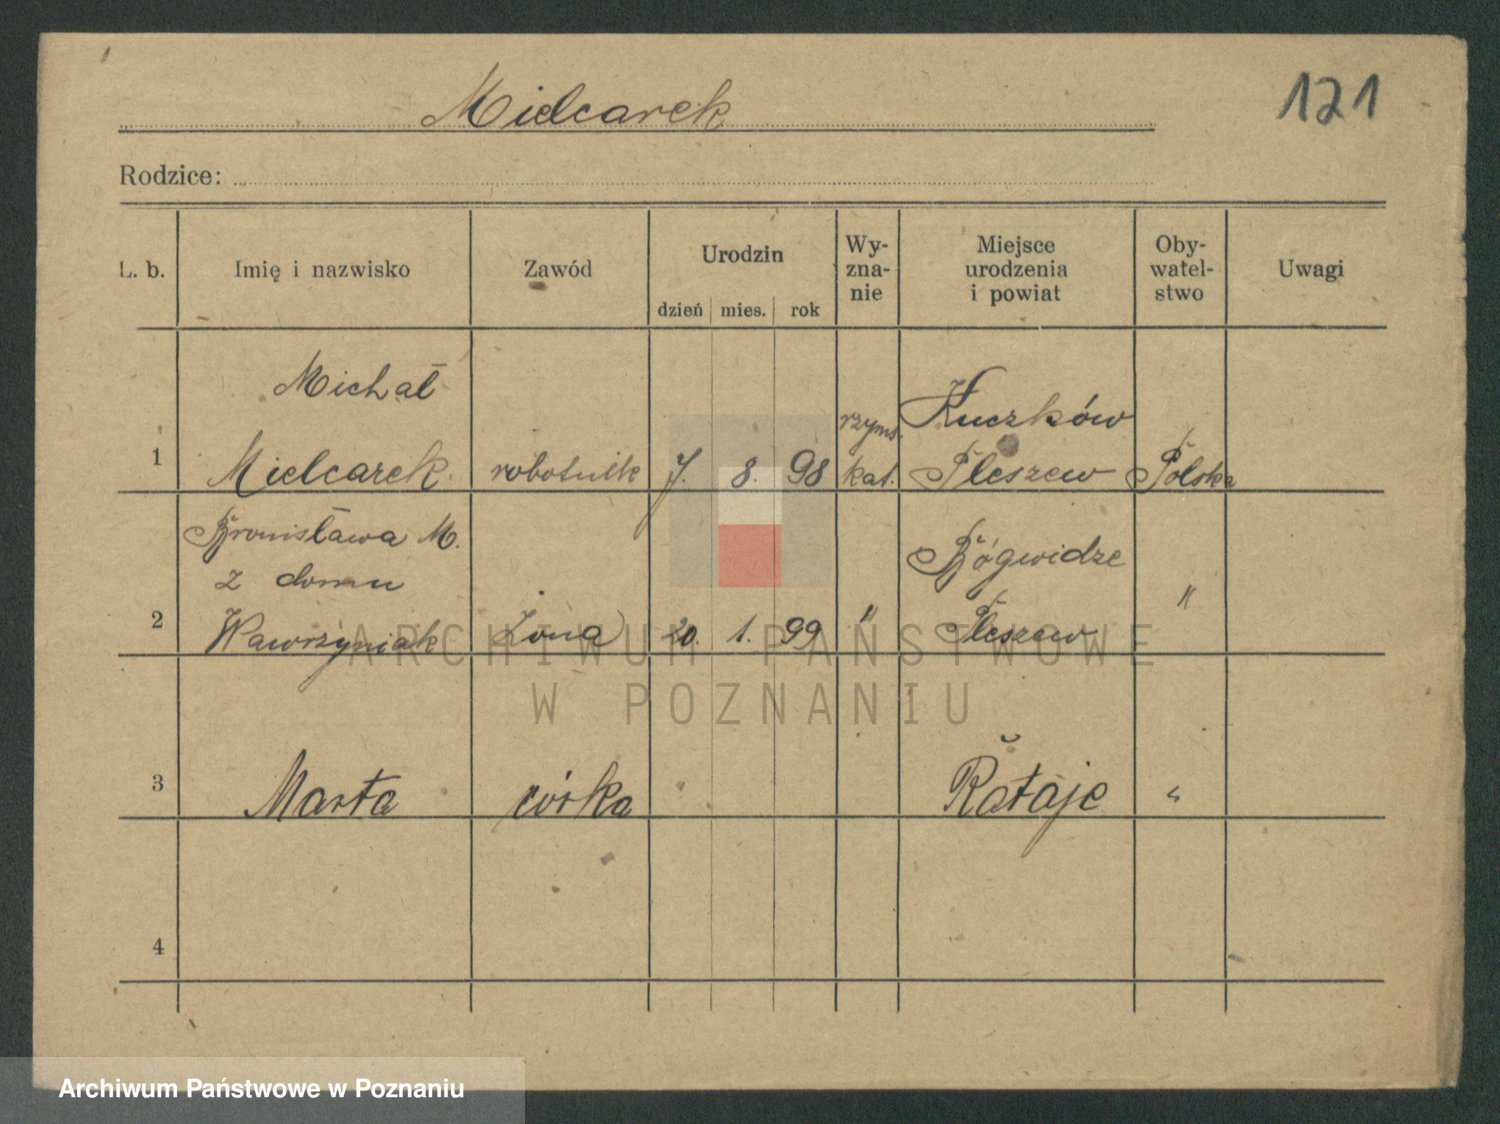 Mielcarek
121
Rodzice:
L. b. Imię i nazwisko Zawód Urodzin dzień mies. rok Wy-
zna-
nie Miejsce
urodzenia
i powiat Oby-
watel-
stwo Uwagi
Michał
1 Mielcarek robotnik 7. 8. 98 rzyms.
kat. Kuczków
Pleszew Polska
Bronisława M.
z domu
2 Wawrzyniak żona 20. 1. 99 " Bógwidze
Pleszew "
3 Marta córka Rataje "
4
ARCHIWUM PAŃSTWOWE
W POZNANIU
Archiwum Państwowe w Poznaniu